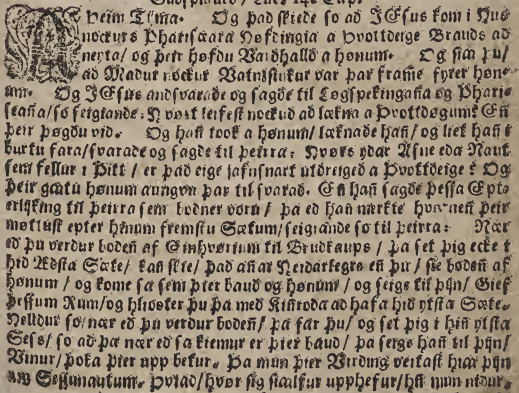 Þeim Tijma. Og þad skiede so ad JEsus kom i Hus
nockurs Phariseara Høfdingia a Þvottdeige Brauds ad
neyta/ og þeir høfdu Vardhalld a hønum. Og siaa þu/
ad Madur nockur Vatnssiukur var þar framme fyrer høn-
um. Og JEsus andsvarade og sagde til Løgspekingana og Phari-
seana/ so seigiande: Hvort leifest nockud ad lækna a Þvottdøgum? En
þeir þøgdu vid. Og han took a hønum/ læknade han/ og liet han i
burtu fara/ svarade og sagde til þeirra: Hvørs ydar Asne eda Naut
sem fellur i Pitt/ er þad eige jafnsnart utdreiged a Þvottdeige? Og
þeir gaatu hønum aungvu þar til svarad. En han sagde þessa Epter-
erlijking til þeirra sem bodner voru/ þa ed han merkte hvørnen þeir
voru epter hinum fremstu Sætum/ seigiande so til þeirra: Nær
ed þu verdur boden af Einhvørium til Brudkaups/ þa set þig ecke i
hid Ædsta Sæte/ kan skie/ þad annar Heidarlegre en þu/ sie boden af
hønum/ og kome sa sem þier baud og hønum/ og seige til þijn/ Gief
þessum Rum/ og hliooter þu þa med Kinroda ad hafa hid ytsta Sæte.
Helldur so/ nær ed þu verdur boden/ þa far þu/ og set þig i hin ytsta
Sess/ so ad þa nær ed sa kiemur er þier baud/ þa seige han til þijn/
Vinur/ þoka þier upp betur. Þa mun þier Virding veitast hiaa þijn-
um Sessunautum. Þviad/ hvør sig siaalfur upphefur/ han mun nidur-